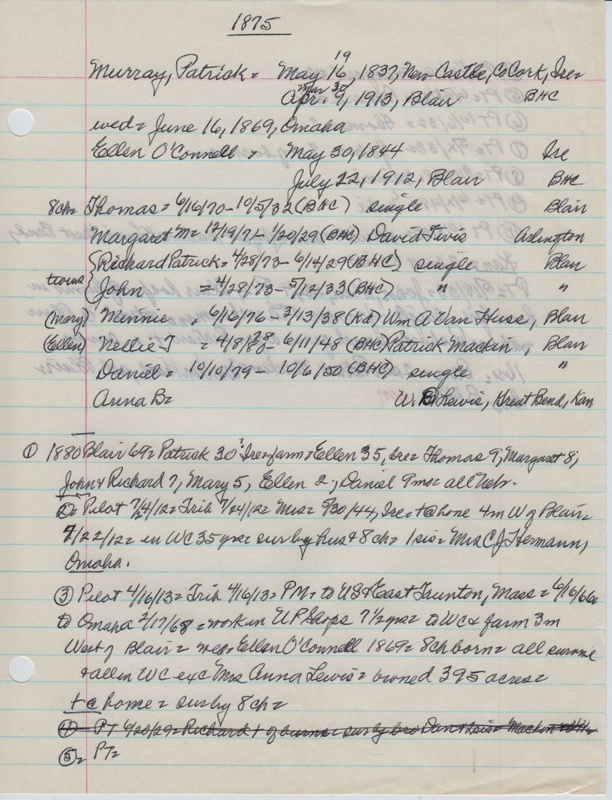 1875
Murray, Patrick = May 16, 1837, New Castle, Co Cork, Ire =
19
Apr. 9, 1913, Blair BHC
Mar 30
wed = June 16, 1869, Omaha
Ellen O'Connell = May 30, 1844 Ire
July 22, 1912, Blair BHC
8ch = Thomas = 6/16/70 - 10/5/32 (BHC) single Blair
Margaret M = 12/19/71 - 1/20/29 (BHC) David Tivis Arlington
twins { Richard Patrick = 4/28/73 - 6/14/29 (BHC) single Blair
John = 4/28/73 - 5/12/33 (BHC) " "
(Mary) Minnie = 6/16/76 - 3/13/38 (Kd) Wm A Van Huss, Blair
(Ellen) Nellie T = 4/8/80 - 6/11/48 (BHC) Patrick Mackin, Blair
78
Daniel = 10/10/79 - 10/6/50 (BHC) single "
Anna B = W. B Lewis, Great Bend, Kan
① 1880 Blair 69 = Patrick 30 = Ire = farm = Ellen 35, Ire = Thomas 9, Margaret 8,
John & Richard 7, Mary 5, Ellen 2, Daniel 9mo = all Nebr.
② = Pilot 7/24/12 = Trib 7/24/12 = Mrs = 5/30/44, Ire = + @ home 4m W of Blair =
7/22/12 = in WC 35 yrs = sur by hus & 8ch = 1 sis = Mrs C J Hermann,
Omaha.
③ Pilot 4/16/13 = Trib 4/16/13 = PM = to US & East Trunton, Mass = 6/6/66
to Omaha 2/17/68 = work in UP Shops 7½ yrs = to WC & farm 3m
West of Blair = wed = Ellen O'Connell 1869 = 8ch born = all survive
& all in WC exc Mrs Anna Lewis = owned 395 acres =
+ @ home = sur by 8ch =
④ = PT 6/20/29 = Richard + of burns = sur by bro Dan & sis = Mackin
⑤ = PT =